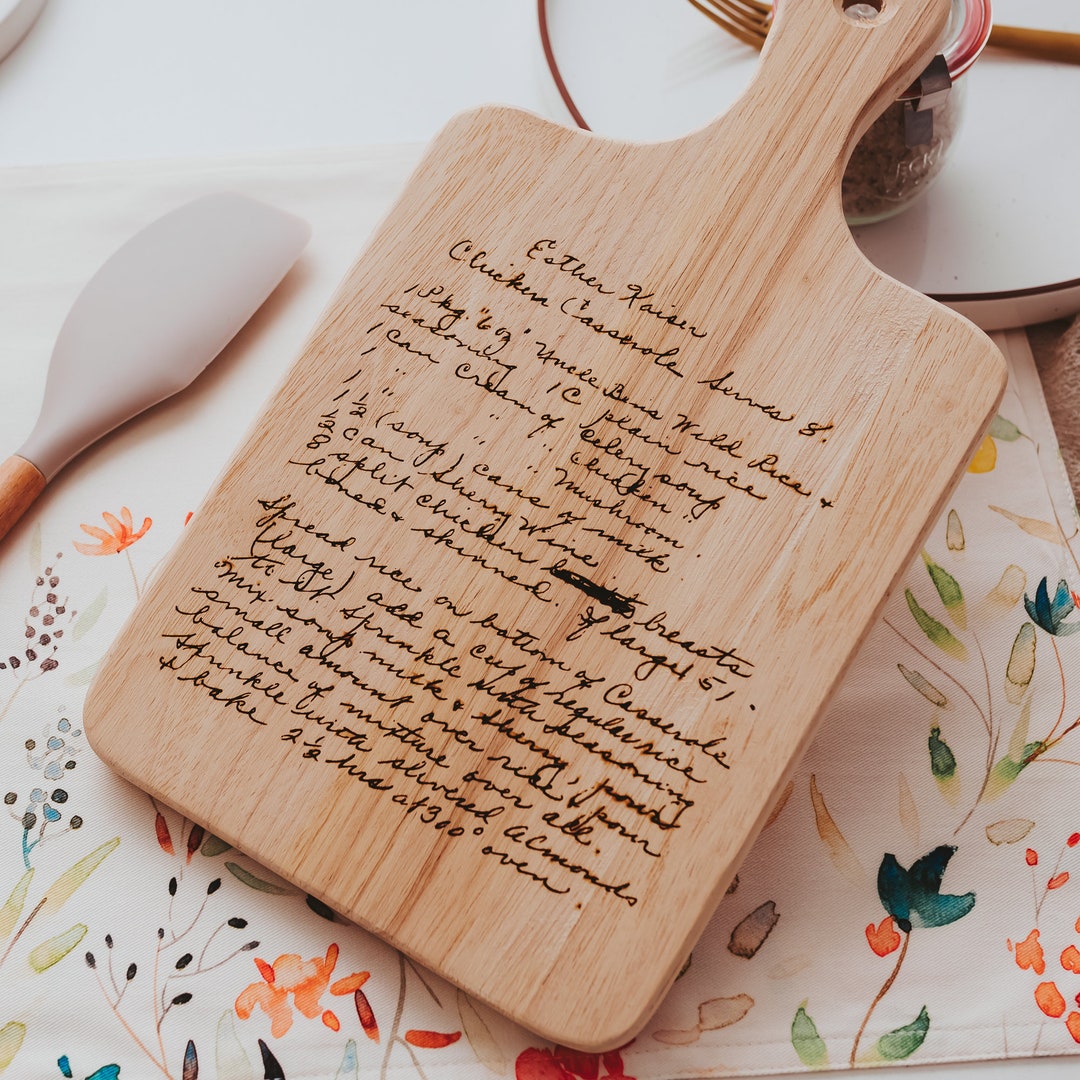 Esther Kaiser
Chicken Casserole Serves 8.
1 Pkg. "6 oz" Uncle Bens Wild Rice &
seasoning 1 C plain rice
1 can Cream of Celery soup
1 " " " Chicken "
1 " " " Mushroom
1 1/2 (soup) cans of milk.
1/2 can Sherry Wine
8 split chicken breasts
boned & skinned. If large (5).
Spread rice on bottom of Casserole
(large) add a cup of regular rice
to it. Sprinkle with seasoning
mix soup milk & sherry, pour
small amount over rice, pour
balance of mixture over all.
Sprinkle with slivered almonds
& bake 2 1/2 hrs at 300° oven.